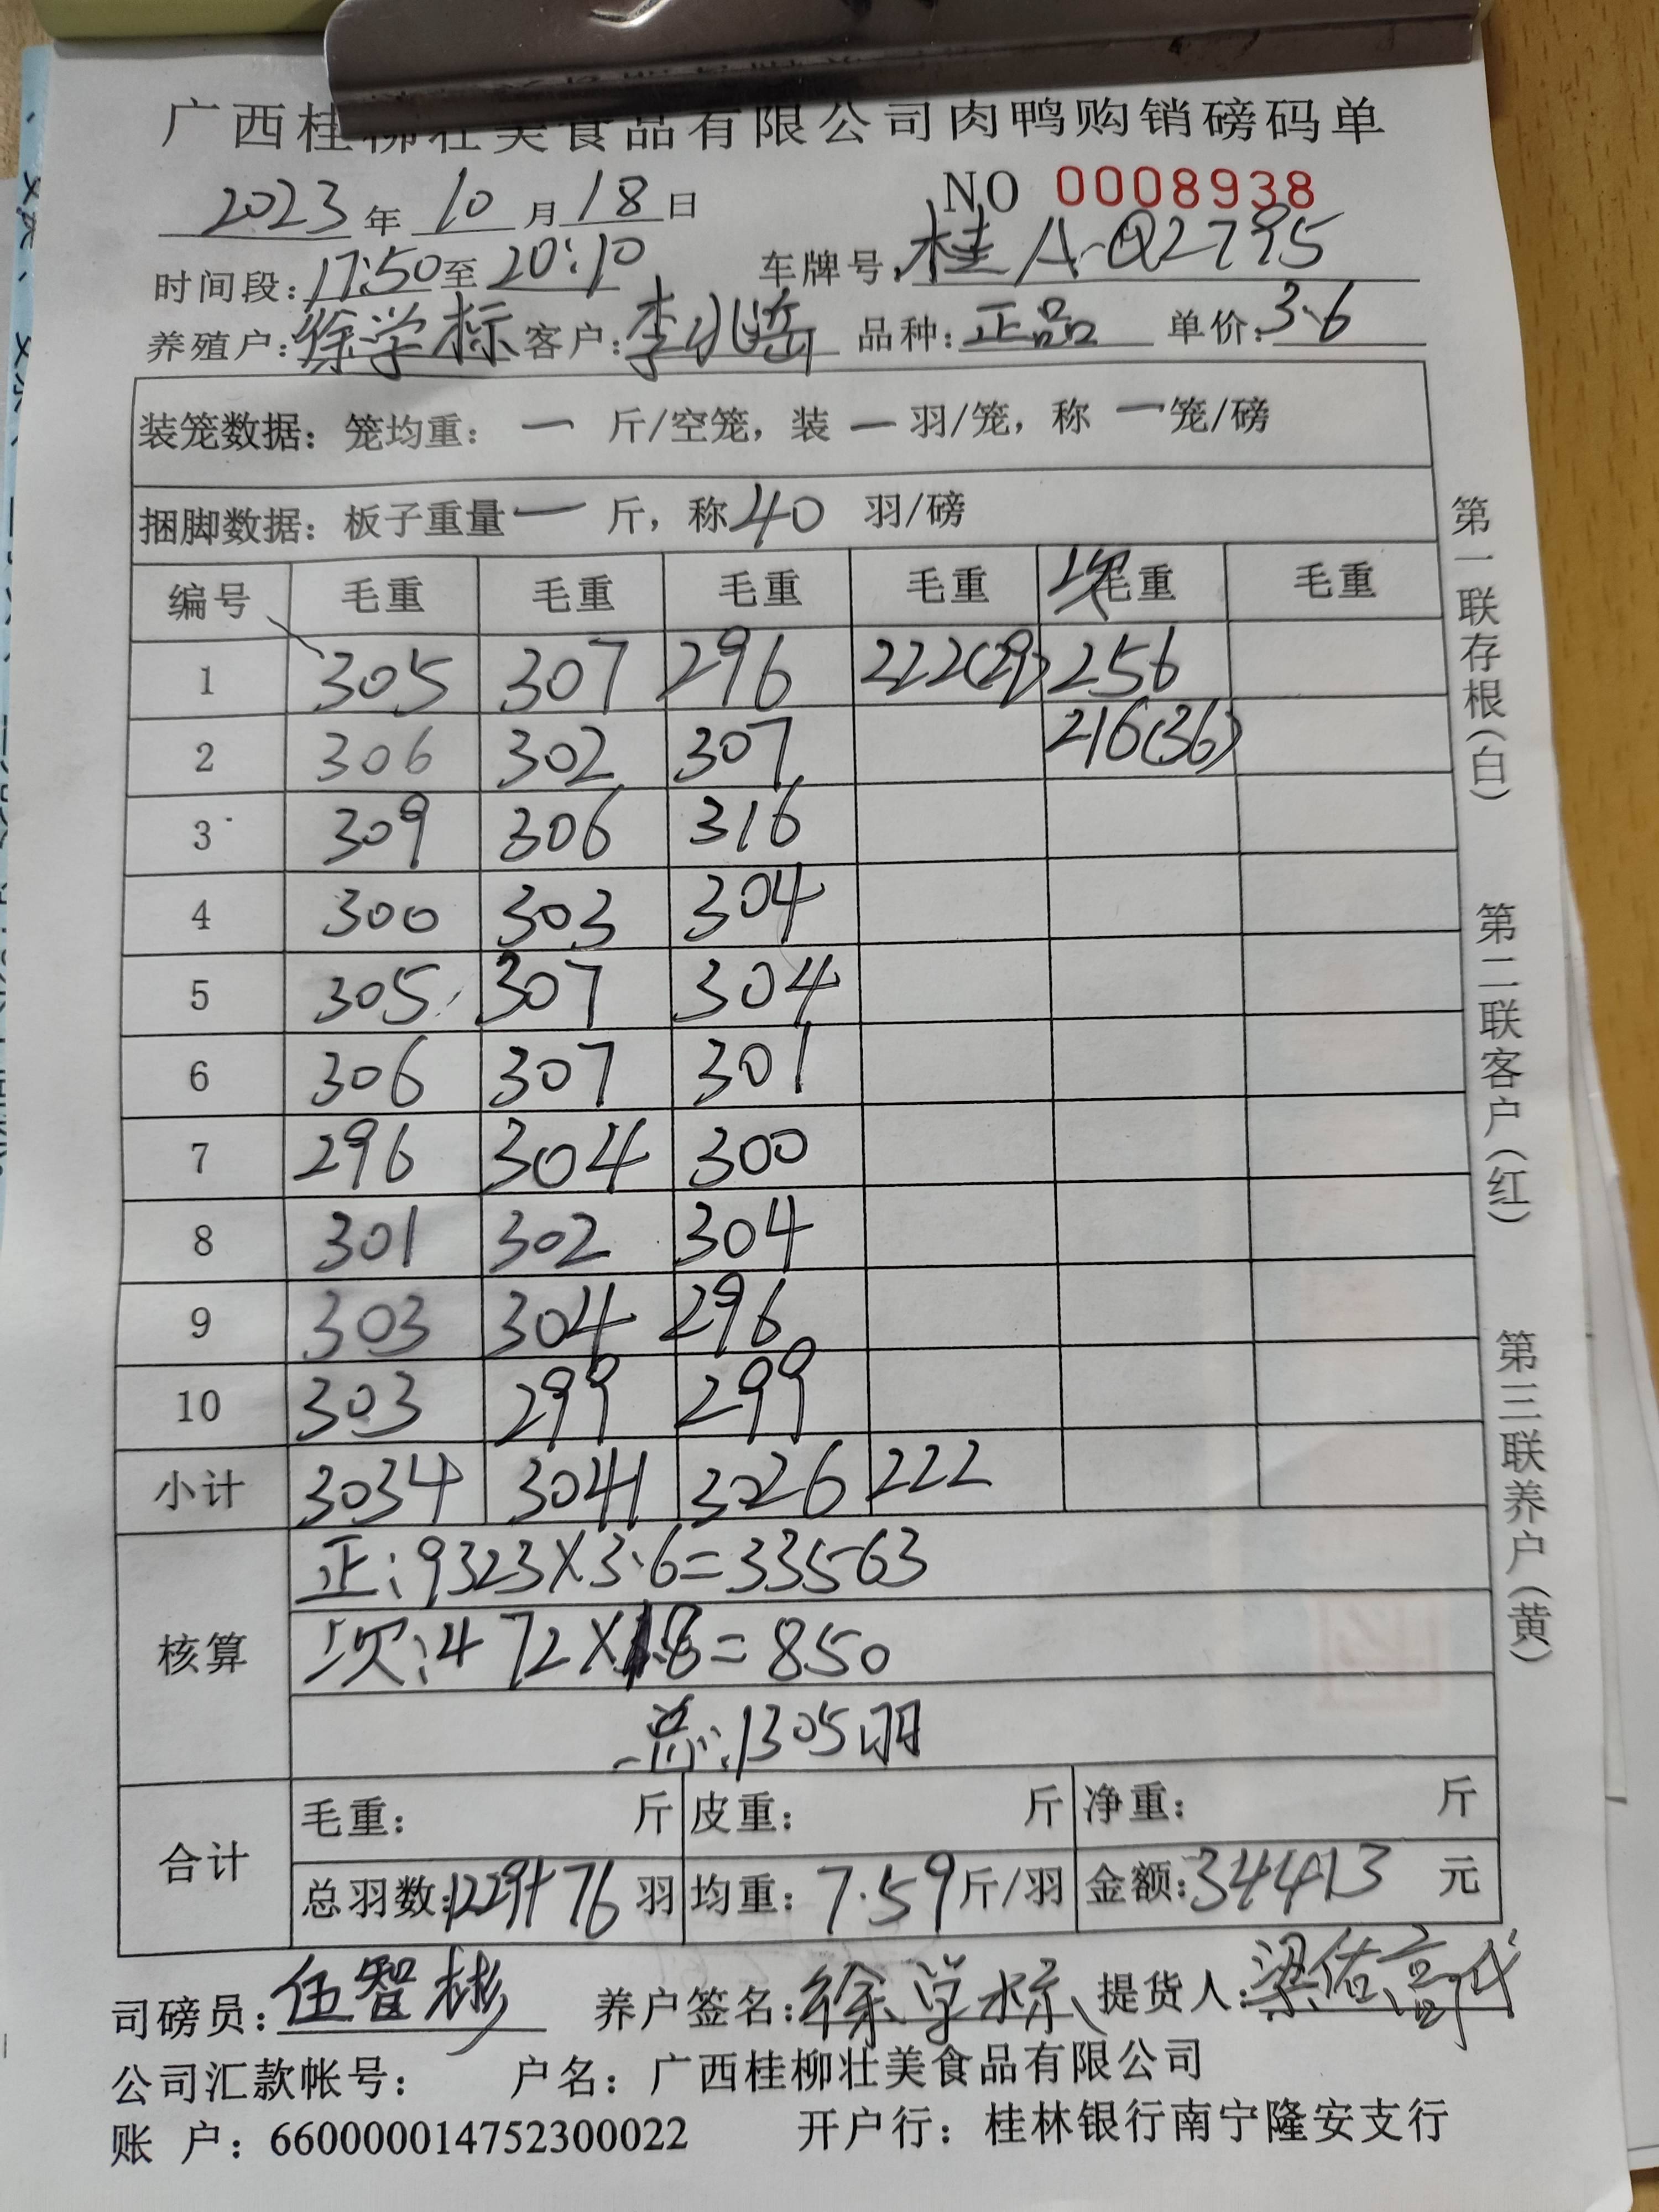 广西桂柳壮美食品有限公司肉鸭购销磅码单
2023年10月18日 NO 0008938
时间段:17:50至20:10 车牌号:桂A·Q2795
养殖户:徐学标 客户:李兆 品种:正品 单价:3.6
装笼数据：笼均重：一 斤/空笼，装一羽/笼，称一笼/磅
捆脚数据：板子重量一斤，称40羽/磅
编号 毛重 毛重 毛重 毛重 次 毛重 毛重
1 305 307 296 222(29) 256
2 306 302 307 216(36)
3 309 306 316
4 300 303 304
5 305 307 304
6 306 307 301
7 296 304 300
8 301 302 304
9 303 304 296
10 303 299 299
小计 3034 3041 3026 222
核算 正:9323×3.6=33563
次:472×1.8=850
总:1305羽
合计 毛重：斤 皮重：斤 净重：斤
总羽数:1229+76羽 均重：7.59斤/羽 金额:34413元
司磅员:伍智彬 养户签名:徐学标 提货人:梁佑高代
公司汇款帐号： 户名：广西桂柳壮美食品有限公司
账 户：660000014752300022 开户行：桂林银行南宁隆安支行
第一联存根(白) 第二联客户(红) 第三联养户(黄)